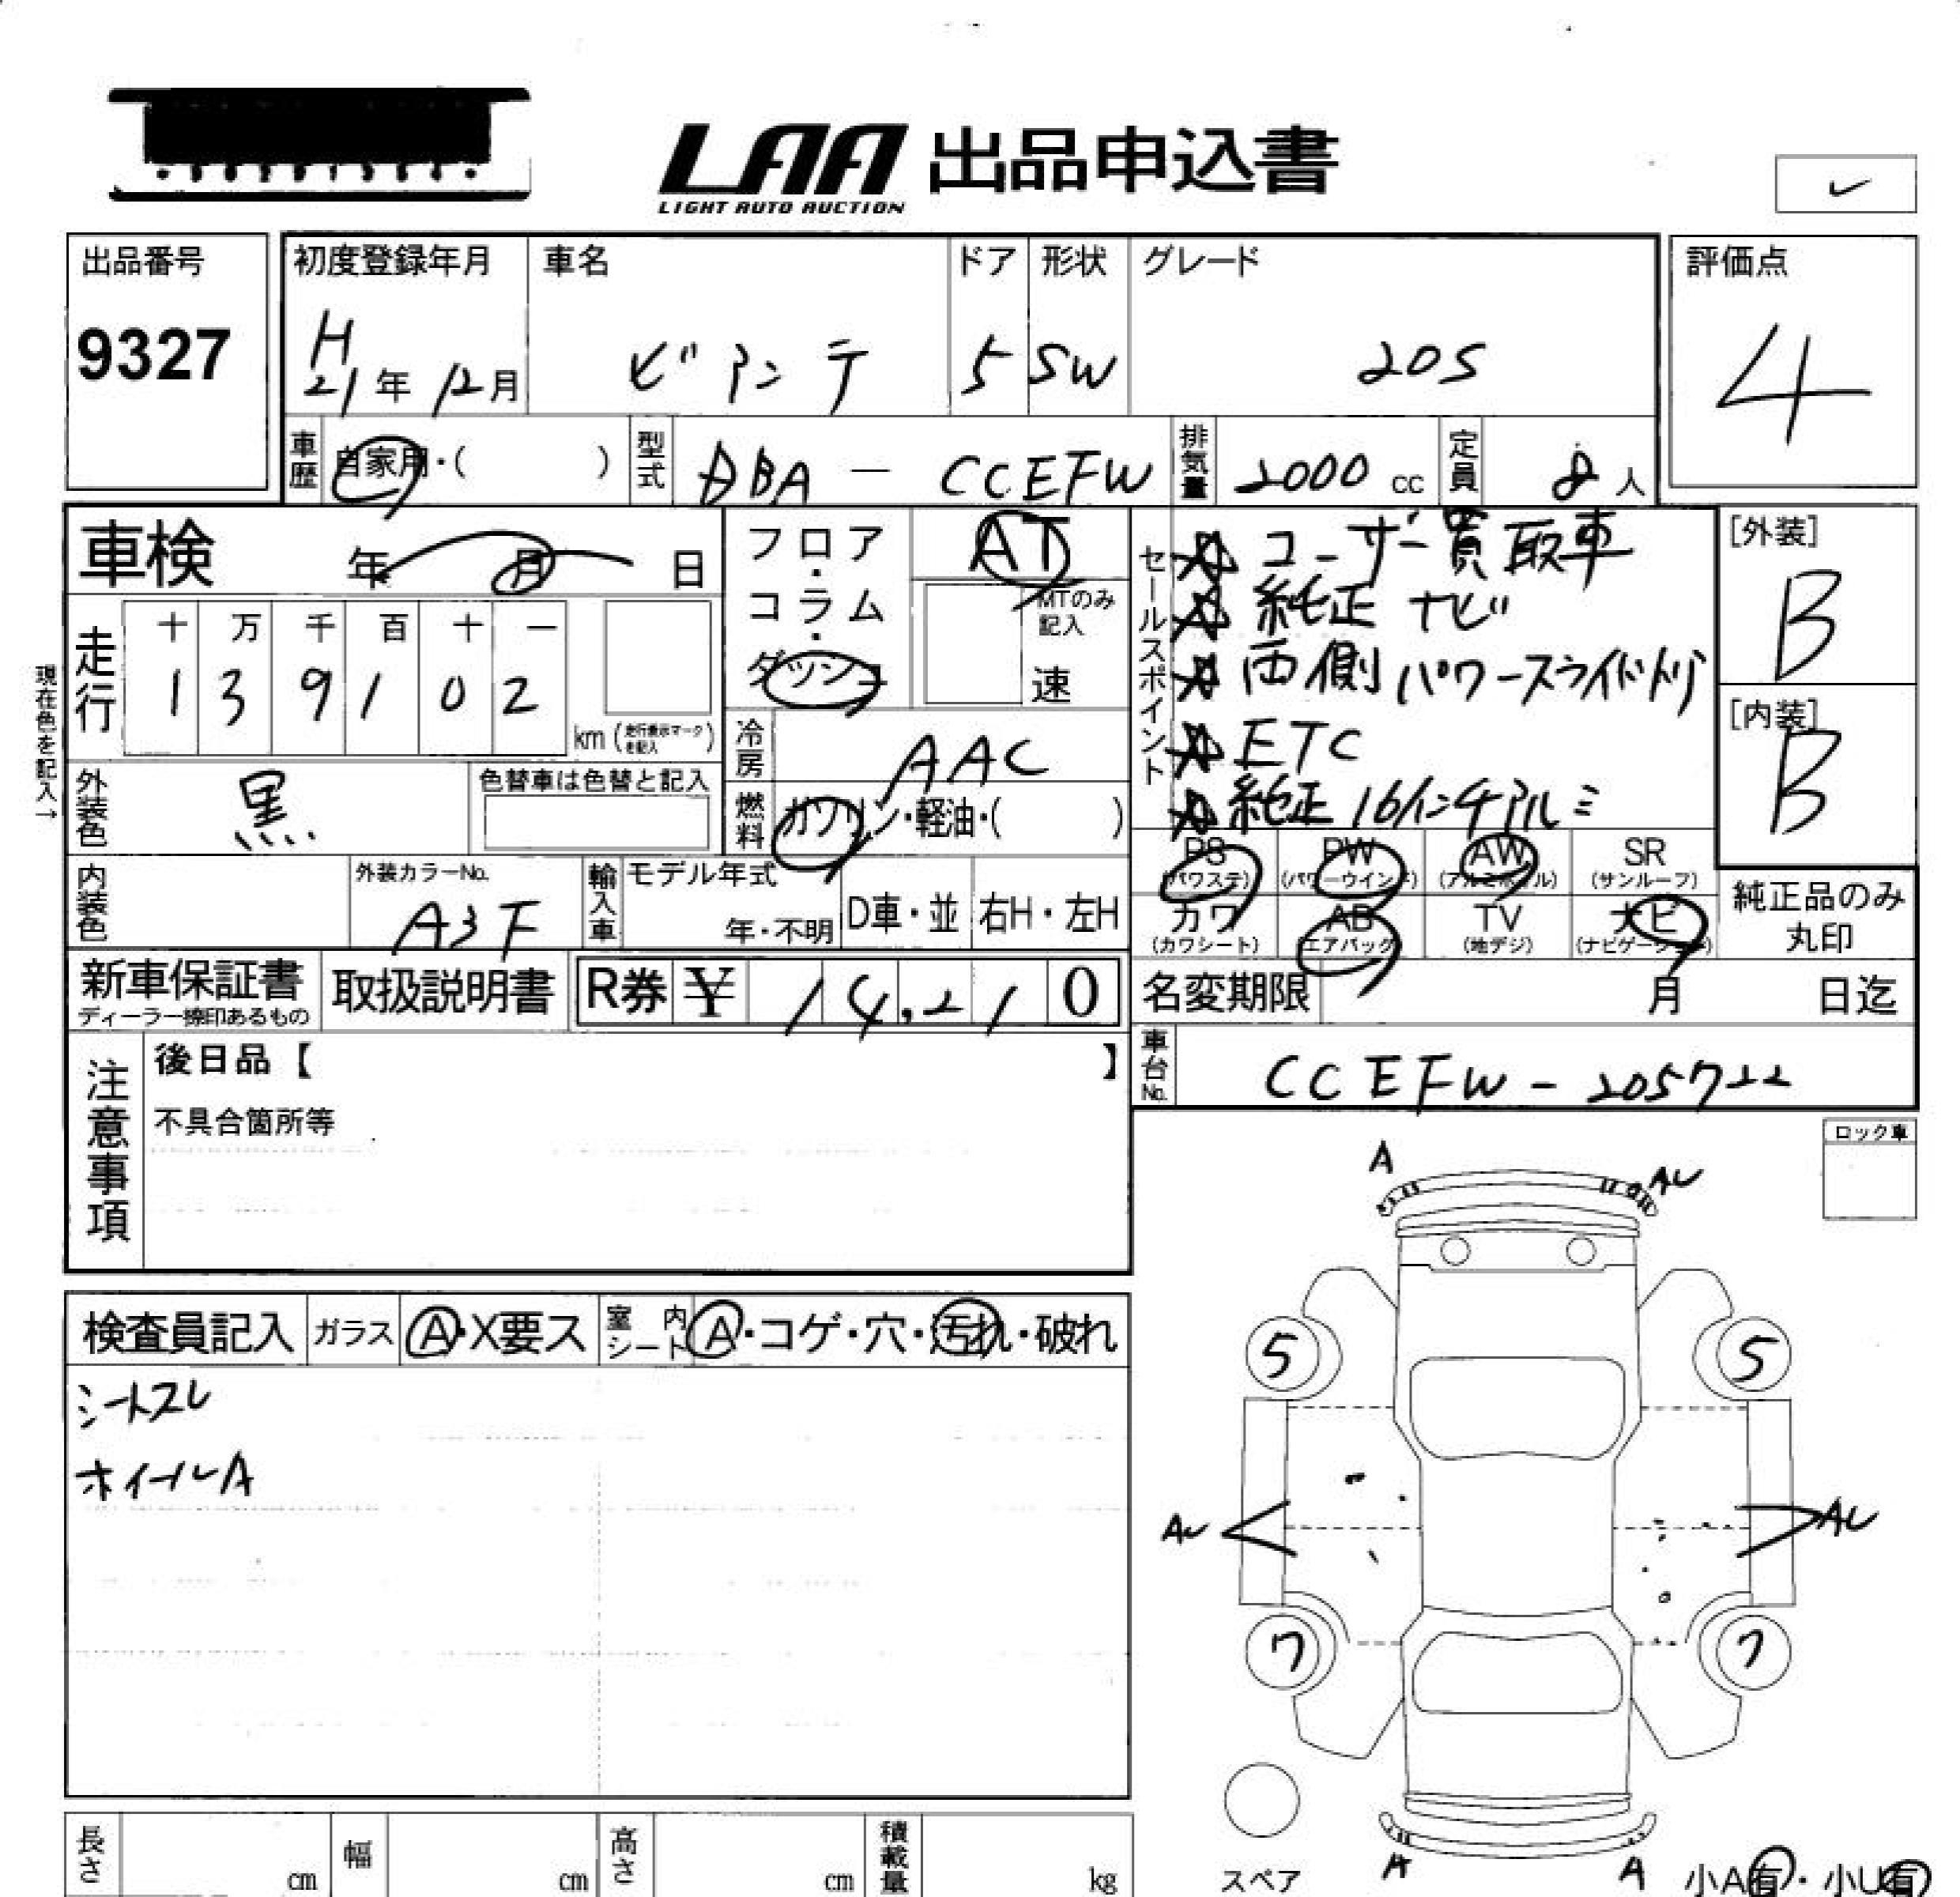 LAA 出品申込書
LIGHT AUTO AUCTION
出品番号
9327
初度登録年月
H
21年 12月
車名
ビアンテ
ドア
5
形状
SW
グレード
20S
評価点
4
車歴
自家用・( )
型式
DBA - CCEFW
排気量
2000 cc
定員
8 人
車検 年 月 日
走行
十 万 千 百 十 一
1 3 9 1 0 2
km (走行表示マークを記入)
現在色を記入→
外装色
黒
色替車は色替と記入
内装色
外装カラーNo.
A3F
フロア・コラム・ダッシュ
AT
MTのみ記入
速
冷房
AAC
燃料
ガソリン・軽油・( )
輸入車
モデル年式
年・不明
D車・並
右H・左H
セールスポイント
☆ ユーザー買取車
☆ 純正ナビ
☆ 両側パワースライドドア
☆ ETC
☆ 純正16インチアルミ
[外装]
B
[内装]
B
PS (パワステ)
PW (パワーウインド)
AW (アルミホイル)
SR (サンルーフ)
カワ (カワシート)
AB (エアバック)
TV (地デジ)
ナビ (ナビゲーション)
純正品のみ
丸印
新車保証書
ディーラー捺印あるもの
取扱説明書
R券 ¥ 14,210
名変期限 月 日迄
車台No.
CCEFW-205722
注意事項
後日品【 】
不具合箇所等
ロック車
検査員記入
ガラス
A・X要ス
室内シート
A・コゲ・穴・汚れ・破れ
シートスレ
ホイールA
A
AU
5
5
AU
AU
7
7
スペア
A
A
小A有・小U有
長さ cm
幅 cm
高さ cm
積載量 kg